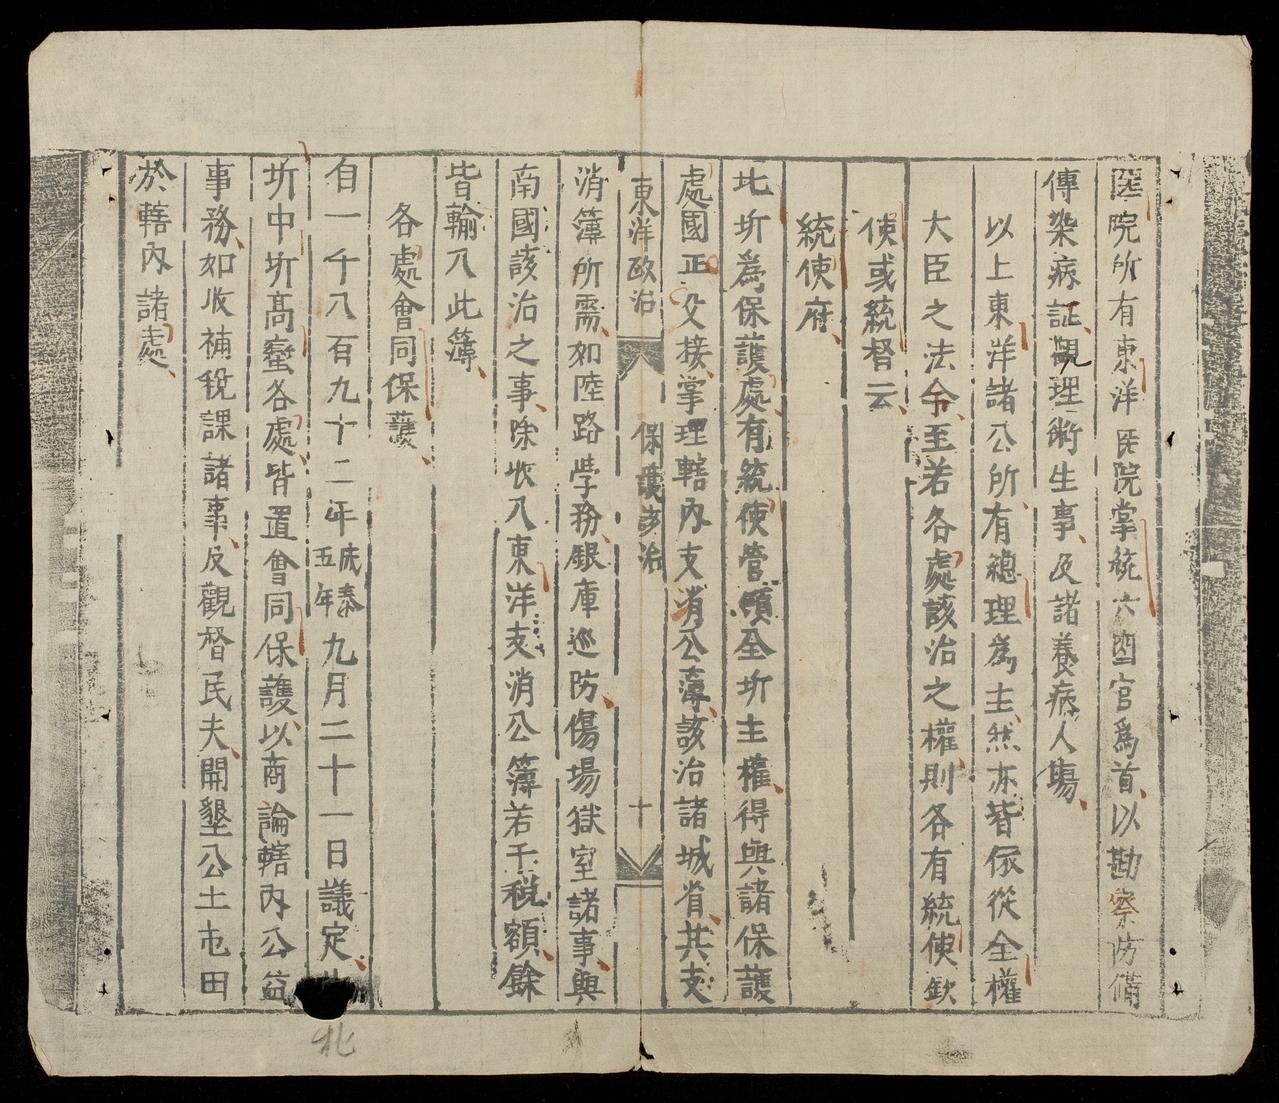 医院所有東洋医院掌統六囬官爲首以勘察防備
傳染病証覌理術生事及諸養病人塲
以上東洋諸公所有總理爲主然亦皆依從全權
大臣之法令至若各處該治之權則各有統使欽
使或統督云
統使府
北圻爲保護處有統使管領全圻主權得與諸保護
處國正交接掌理轄内支消公簿該治諸城省其支
東洋政治 保護該治 十
消簿所需如陸路學務銀庫巡防傷場獄室諸事與
南國該治之事除收入東洋支消公簿若干税額餘
皆輸入此簿
各處會同保護
自一千八百九十二年成泰五年九月二十一日議定
圻中圻髙蠻各處皆置會同保護以商論轄内公益
事務如收補税課諸事反觀督民夫開墾公土屯田
於轄内諸處
北